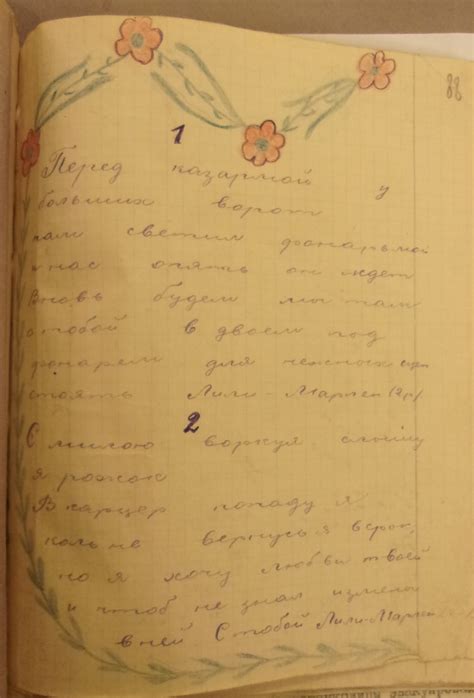 88
1
Перед казармой у
больших ворот
там светит фонарь мой
и нас опять он ждет
Вновь будем мы там
с тобой в двоем под
фонарем для нежных
стоять Лили-Марлен (2р)
2
С милою воркуя слышу
я рожок
В карцер попаду я
коль не вернусь я в срок,
но я хочу любви твоей
и чтоб не знал измены
в ней С тобой Лили-Марлен